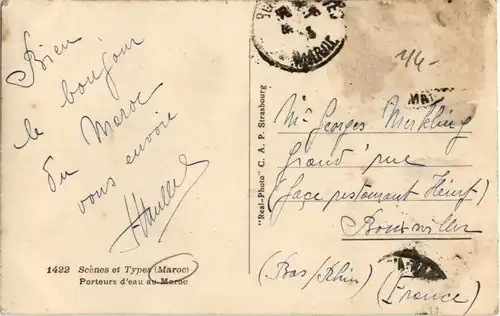 Bien
le bonjour
du Maroc
vous envoie
1422 Scènes et Types (Maroc)
Porteurs d'eau au Maroc
"Real-Photo" C. A. P. Strasbourg
MAROC
114-
MA
Mr Georges Merkling
Grand' rue
(face restaurant Heinst)
Bouxwiller
(Bas/Rhin)
(France)